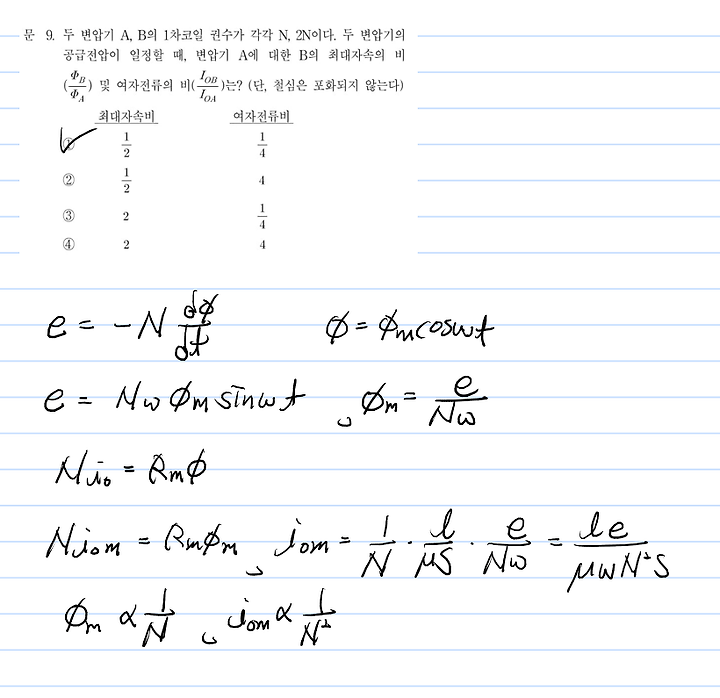 문 9. 두 변압기 A, B의 1차코일 권수가 각각 N, 2N이다. 두 변압기의
공급전압이 일정할 때, 변압기 A에 대한 B의 최대자속의 비
(Φ_B/Φ_A) 및 여자전류의 비(I_OB/I_OA)는? (단, 철심은 포화되지 않는다)
최대자속비 여자전류비
① 1/2 1/4
② 1/2 4
③ 2 1/4
④ 2 4
e = -N dφ/dt φ = φm cosωt
e = Nω φm sinωt , φm = e/Nω
N i₀ = Rm φ
N i₀m = Rm φm , i₀m = 1/N · l/μS · e/Nω = le/μωN²S
φm ∝ 1/N , i₀m ∝ 1/N²